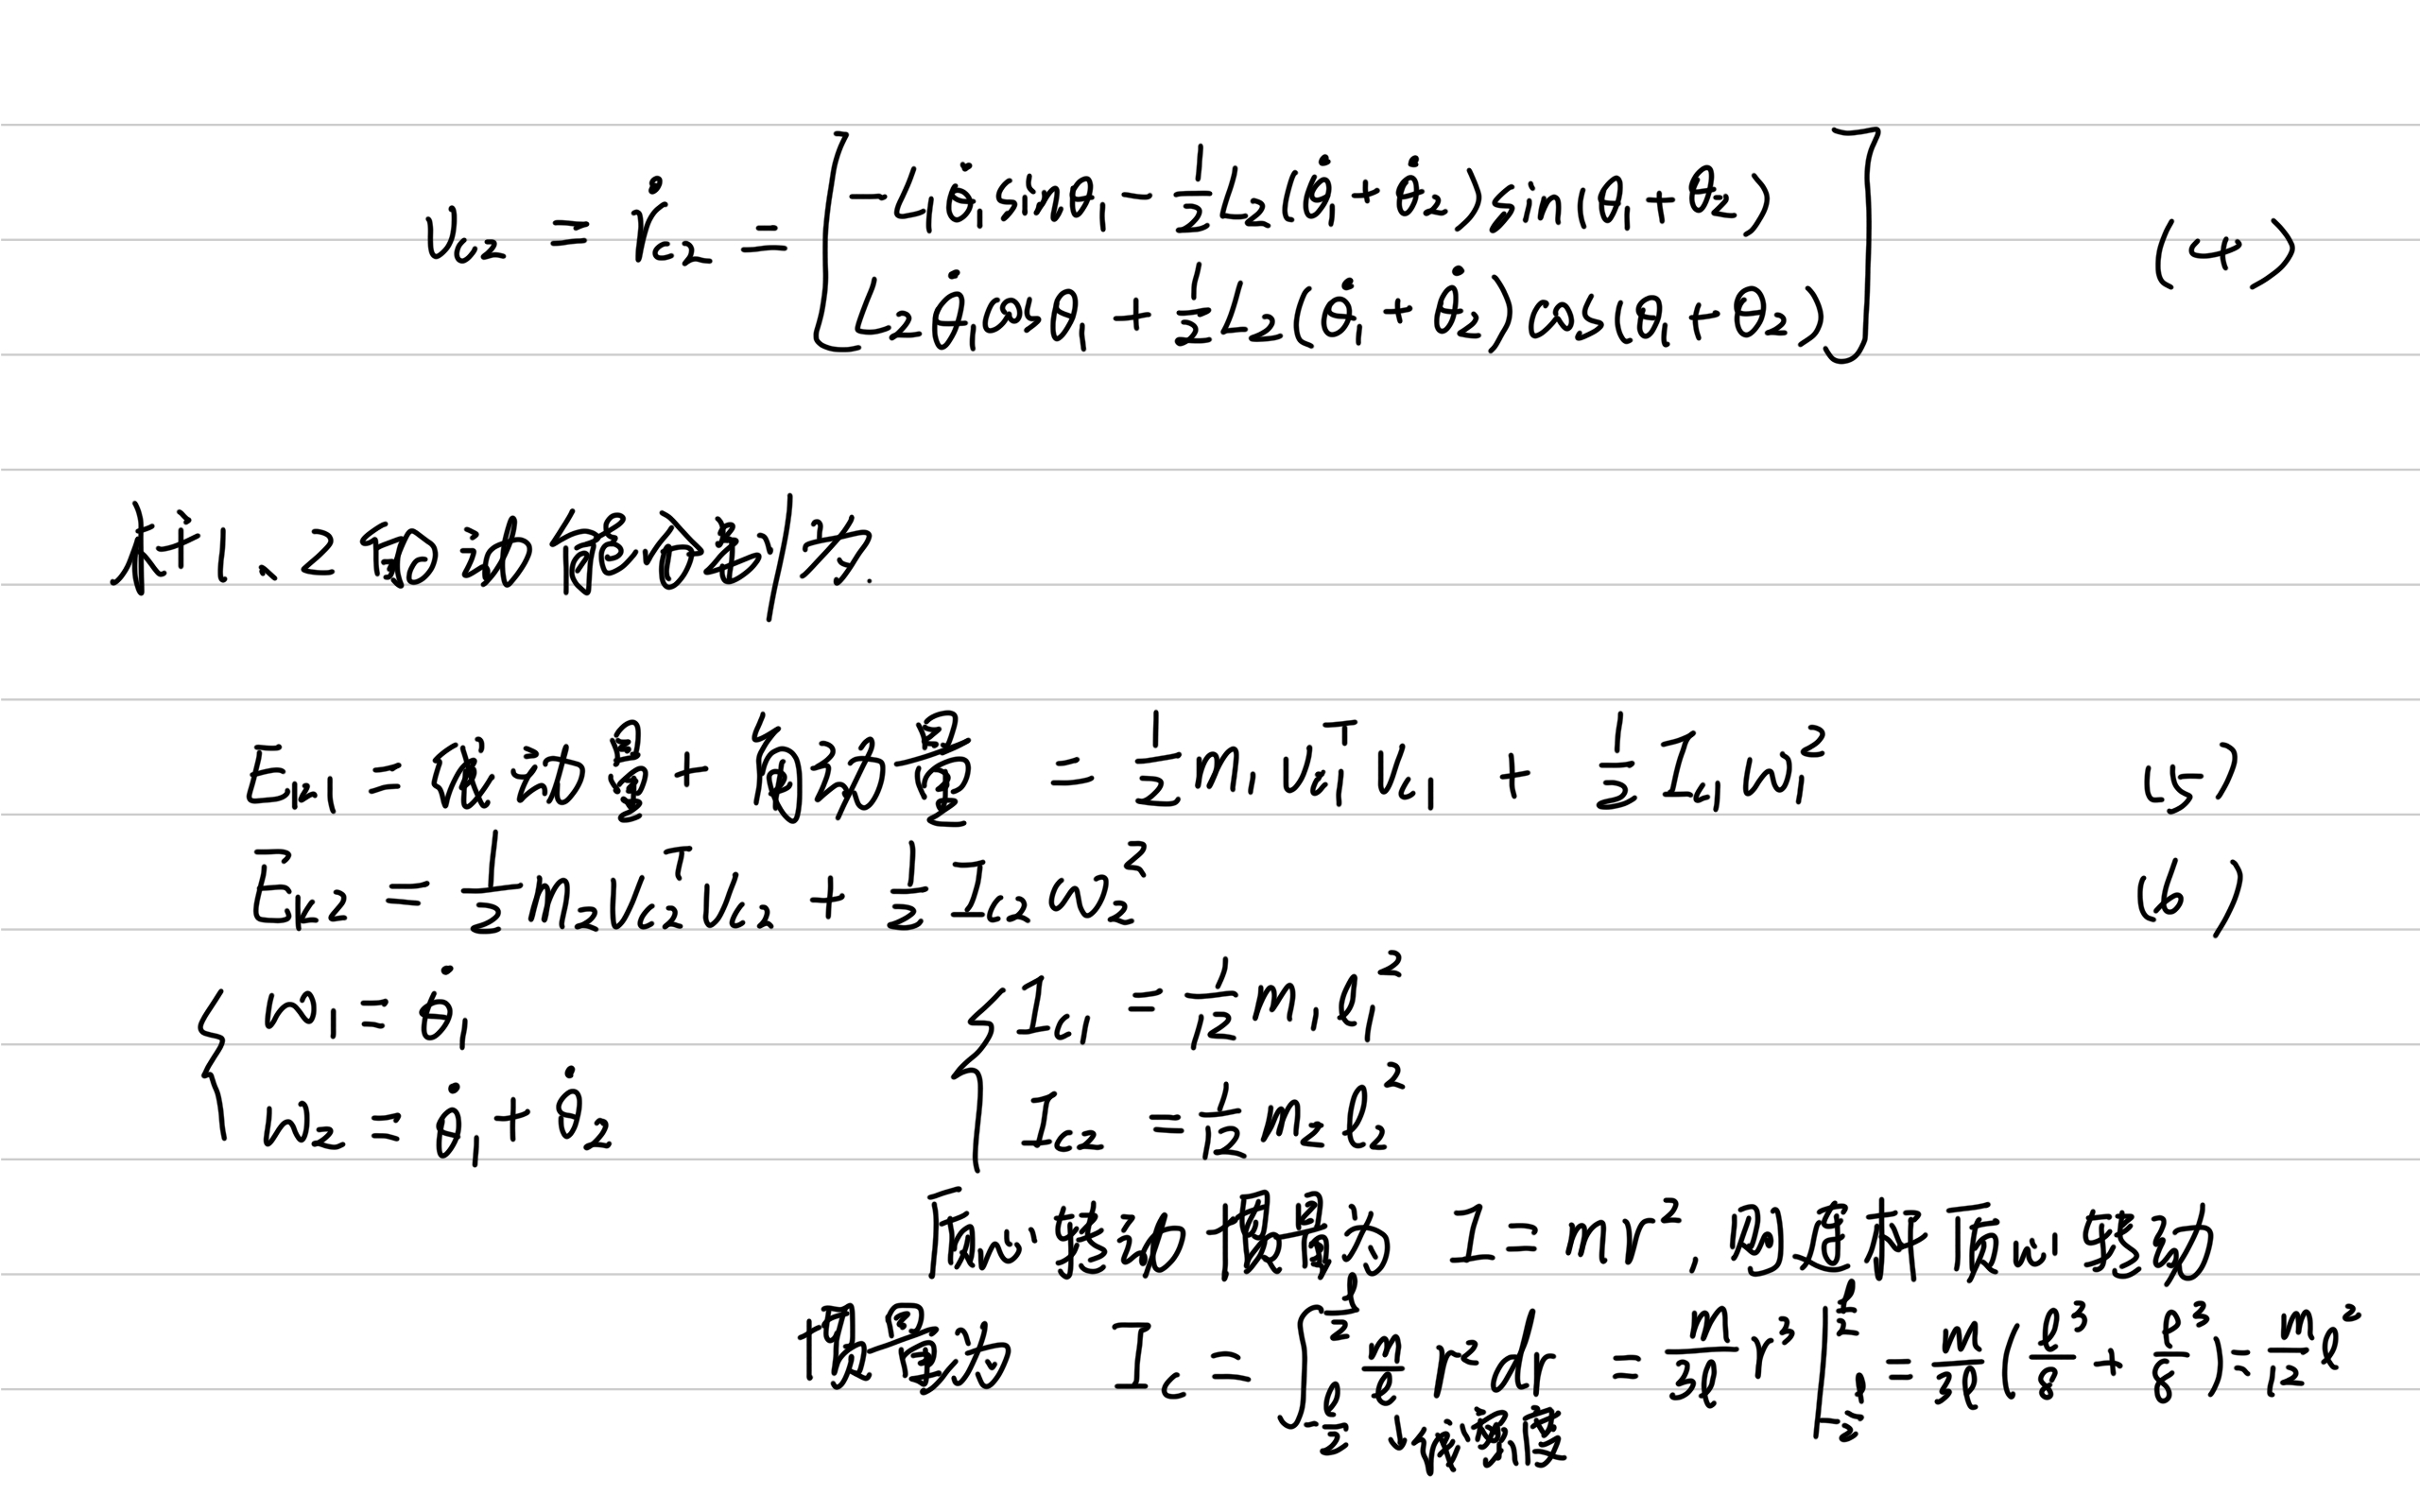 v_{c2} = \dot{r}_{c2} = \begin{bmatrix} -L_1\dot{\theta}_1 sin\theta_1 - \frac{1}{2}L_2(\dot{\theta}_1 + \dot{\theta}_2)sin(\theta_1 + \theta_2) \\ L_2\dot{\theta}_1cos\theta_1 + \frac{1}{2}L_2(\dot{\theta}_1 + \dot{\theta}_2)cos(\theta_1 + \theta_2) \end{bmatrix} (4)
杆1、2的动能分别为.
E_{k1} = 线动量 + 角动量 = \frac{1}{2}m_1v_{c1}^Tv_{c1} + \frac{1}{2}I_{c1}ω_1^2 (5)
E_{k2} = \frac{1}{2}m_2v_{c2}^Tv_{c2} + \frac{1}{2}I_{c2}ω_2^2 (6)
{ ω_1 = \dot{\theta}_1 { I_{c1} = \frac{1}{12}m_1l_1^2
ω_2 = \dot{\theta}_1 + \dot{\theta}_2 I_{c2} = \frac{1}{12}m_2l_2^2
质心转动惯量为 I = mr^2, 则连杆质心转动
惯量为 I_c = \int_{-\frac{l}{2}}^{\frac{l}{2}} \frac{m}{l}r^2dr = \frac{m}{3l}r^3|_{-\frac{l}{2}}^{\frac{l}{2}} = \frac{m}{3l}(\frac{l^3}{8} + \frac{l^3}{8}) = \frac{m}{12}l^2
↓线密度